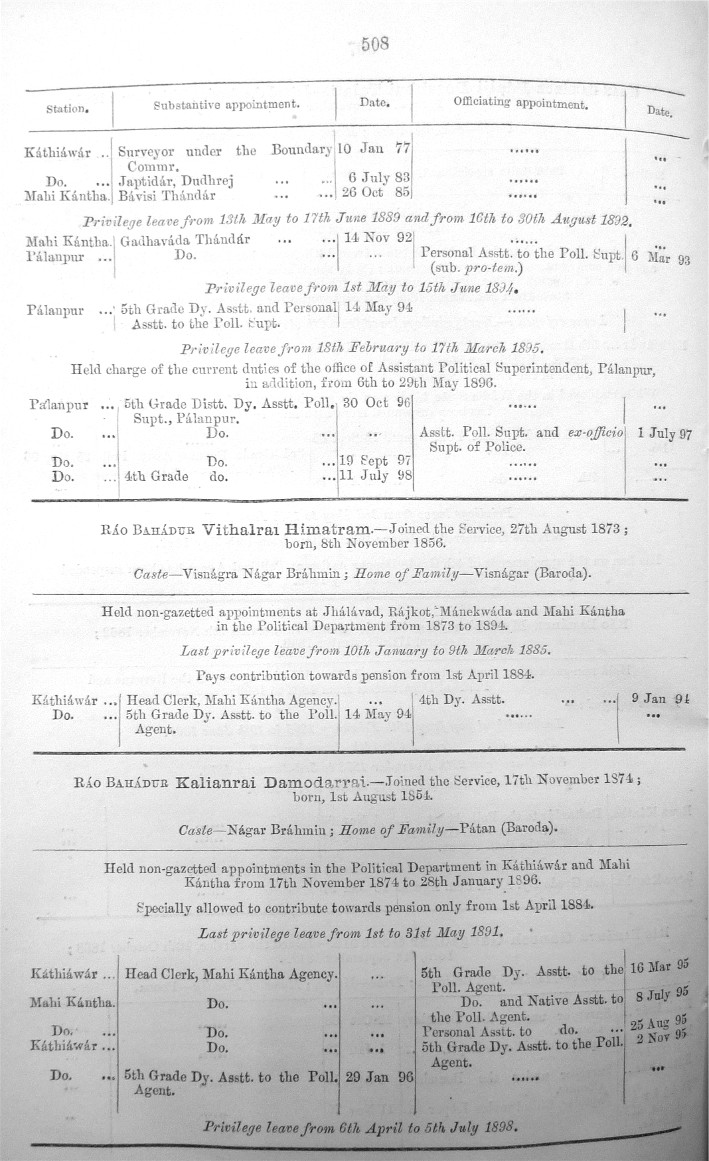 508
Station. Substantive appointment. Date. Officiating appointment. Date.
Káthiáwár ... Surveyor under the Boundary 10 Jan 77 ...... ...
Commr.
Do. ... Japtidár, Dudhrej ... ... 6 July 83 ...... ...
Mahi Kántha. Bávisi Thándár ... ... 26 Oct 85 ...... ...
Privilege leave from 13th May to 17th June 1889 and from 16th to 30th August 1892.
Mahi Kántha. Gadhaváda Thándár ... ... 14 Nov 92 ...... ...
Pálanpur ... Do. ... ... Personal Asstt. to the Poll. Supt. 6 Mar 93
(sub. pro-tem.)
Privilege leave from 1st May to 15th June 1894.
Pálanpur ... 5th Grade Dy. Asstt. and Personal 14 May 94 ...... ...
Asstt. to the Poll. Supt.
Privilege leave from 18th February to 17th March 1895.
Held charge of the current duties of the office of Assistant Political Superintendent, Pálanpur,
in addition, from 6th to 29th May 1896.
Pálanpur ... 5th Grade Distt. Dy. Asstt. Poll. 30 Oct 96 ...... ...
Supt., Pálanpur.
Do. ... Do. ... ... Asstt. Poll. Supt. and ex-officio 1 July 97
Supt. of Police.
Do. ... Do. ... 19 Sept 97 ...... ...
Do. ... 4th Grade do. ... 11 July 98 ...... ...
RÁO BAHÁDUR Vithalrai Himatram.—Joined the Service, 27th August 1873 ;
born, 8th November 1856.
Caste—Visnágra Nágar Bráhmin ; Home of Family—Visnágar (Baroda).
Held non-gazetted appointments at Jhálávad, Rájkot, Mánekwáda and Mahi Kántha
in the Political Department from 1873 to 1894.
Last privilege leave from 10th January to 9th March 1885.
Pays contribution towards pension from 1st April 1884.
Káthiáwár ... Head Clerk, Mahi Kántha Agency. ... 4th Dy. Asstt. ... ... 9 Jan 94
Do. ... 5th Grade Dy. Asstt. to the Poll. 14 May 94 ...... ...
Agent.
RÁO BAHÁDUR Kalianrai Damodarrai.—Joined the Service, 17th November 1874 ;
born, 1st August 1854.
Caste—Nágar Bráhmin ; Home of Family—Pátan (Baroda).
Held non-gazetted appointments in the Political Department in Káthiáwár and Mahi
Kántha from 17th November 1874 to 28th January 1896.
Specially allowed to contribute towards pension only from 1st April 1884.
Last privilege leave from 1st to 31st May 1891.
Káthiáwár ... Head Clerk, Mahi Kántha Agency. ... 5th Grade Dy. Asstt. to the 16 Mar 95
Poll. Agent.
Mahi Kántha. Do. ... ... Do. and Native Asstt. to 8 July 95
the Poll. Agent.
Do. ... Do. ... ... Personal Asstt. to do. ... 25 Aug 95
Káthiáwár ... Do. ... ... 5th Grade Dy. Asstt. to the Poll. 2 Nov 95
Agent.
Do. ... 5th Grade Dy. Asstt. to the Poll. 29 Jan 96 ...... ...
Agent.
Privilege leave from 6th April to 5th July 1898.